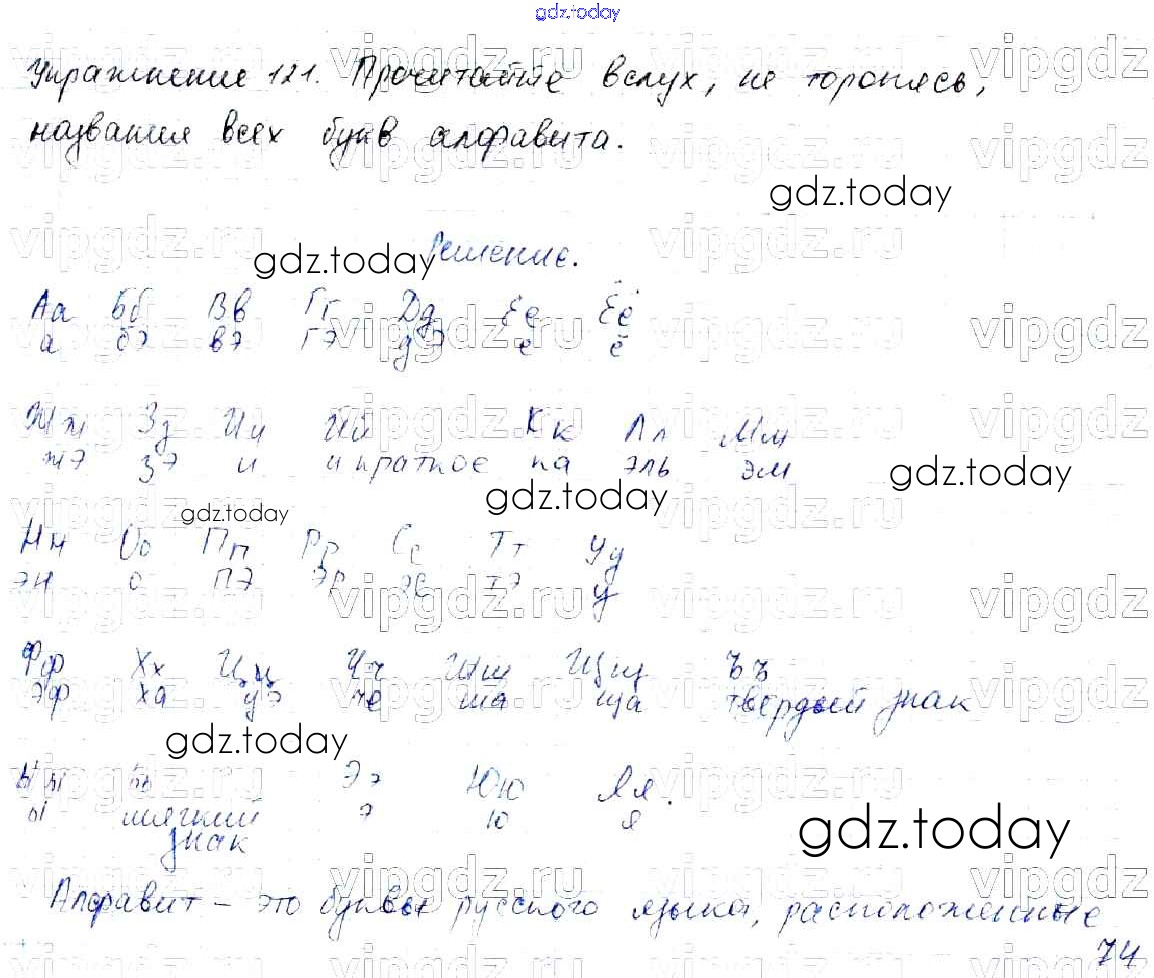 gdz.today
Упражнение 121. Прочитайте вслух, не торопясь,
названия всех букв алфавита.
Решение.
Аа Бб Вв Гг Дд Ее Ёё
а бэ вэ гэ дэ е ё
Жж Зз Ии Йй Кк Лл Мм
жэ зэ и и краткое ка эль эм
Нн Оо Пп Рр Сс Тт Уу
эн о пэ эр эс тэ у
Фф Хх Цц Чч Шш Щщ Ъъ
эф ха цэ че ша ща твердый знак
Ыы Ьь Ээ Юю Яя.
ы мягкий э ю я
знак
Алфавит – это буквы русского языка, расположенные
74